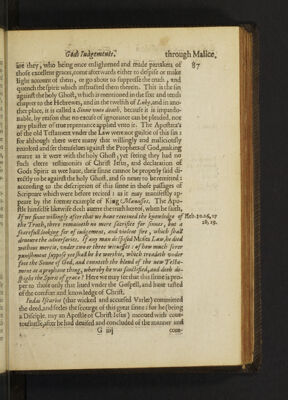 Gods Iudgements. through Malice,
are they, who being once enlightened and made partakers of 87
those excellent graces, come afterwards either to despise or make
light account of them, or go about to suppresse the truth, and
quench the spirit which instructed them therein. This is the sin
against the holy Ghost, which is mentioned in the sixt and tenth
chapter to the Hebrewes, and in the twelfth of Luke, and in ano-
ther place, it is called a Sinne unto death, because it is impardo-
nable, by reason that no excuse of ignorance can be pleaded, nor
any plaister of true repentance applied unto it. The Apostata's
of the old Testament under the Law were not guiltie of this sin:
for although there were many that willingly and maliciously
revolted and set themselves against the Prophets of God, making
warre as it were with the holy Ghost, yet seeing they had not
such cleere testimonies of Christ Iesus, and declaration of
Gods Spirit as wee have, their sinne cannot be properly said di-
rectly to be against the holy Ghost, and so never to be remitted;
according to the description of this sinne in those passages of
Scripture which were before recited: as it may manifestly ap-
peare by the former example of King Manasses. The Apo-
stle himselfe likewise doth averre the truth hereof, when he saith,
If we sinne willingly after that we have received the knowledge of Heb. 10. 26, 27
the Truth, there remaineth no more sacrifice for sinnes, but a 28, 29.
fearefull looking for of iudgement, and violent fire, which shall
devoure the adversaries. If any man despised Moses Law, he died
without mercie, under two or three witnesses: of how much sorer
punishment suppose yee shall he be worthie, which treadeth under
foot the Sonne of God, and counteth the bloud of the new Testa-
ment as a prophane thing, whereby he was sanctified, and doth de-
spight the Spirit of grace? Here we may see that this sinne is pro-
per to those only that lived under the Gospell, and have tasted
of the comfort and knowledge of Christ.
Iudas Iscariot (that wicked and accursed Varlet) committed
the deed, and feeles the scourge of this great sinne: for he (being
a Disciple, nay an Apostle of Christ Iesus) mooved with cove-
tousnesse, after he had devised and concluded of the manner and
G iiij com-